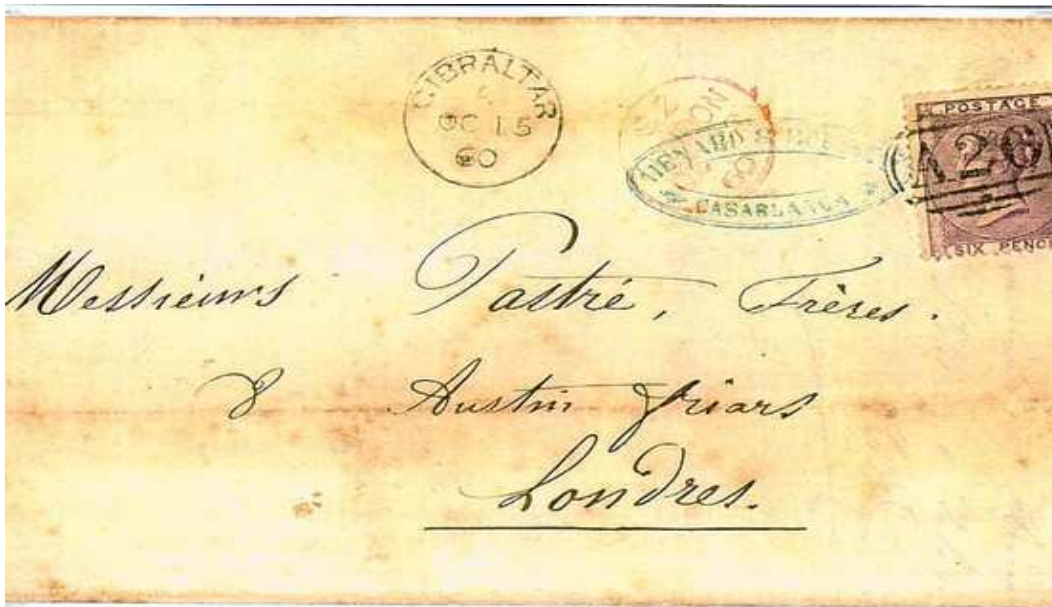 GIBRALTAR
OC 15
60
CASABLANCA
POSTAGE
A26
SIX PENCE
Messieurs Pastré, Frères.
8 Austin Friars
Londres.